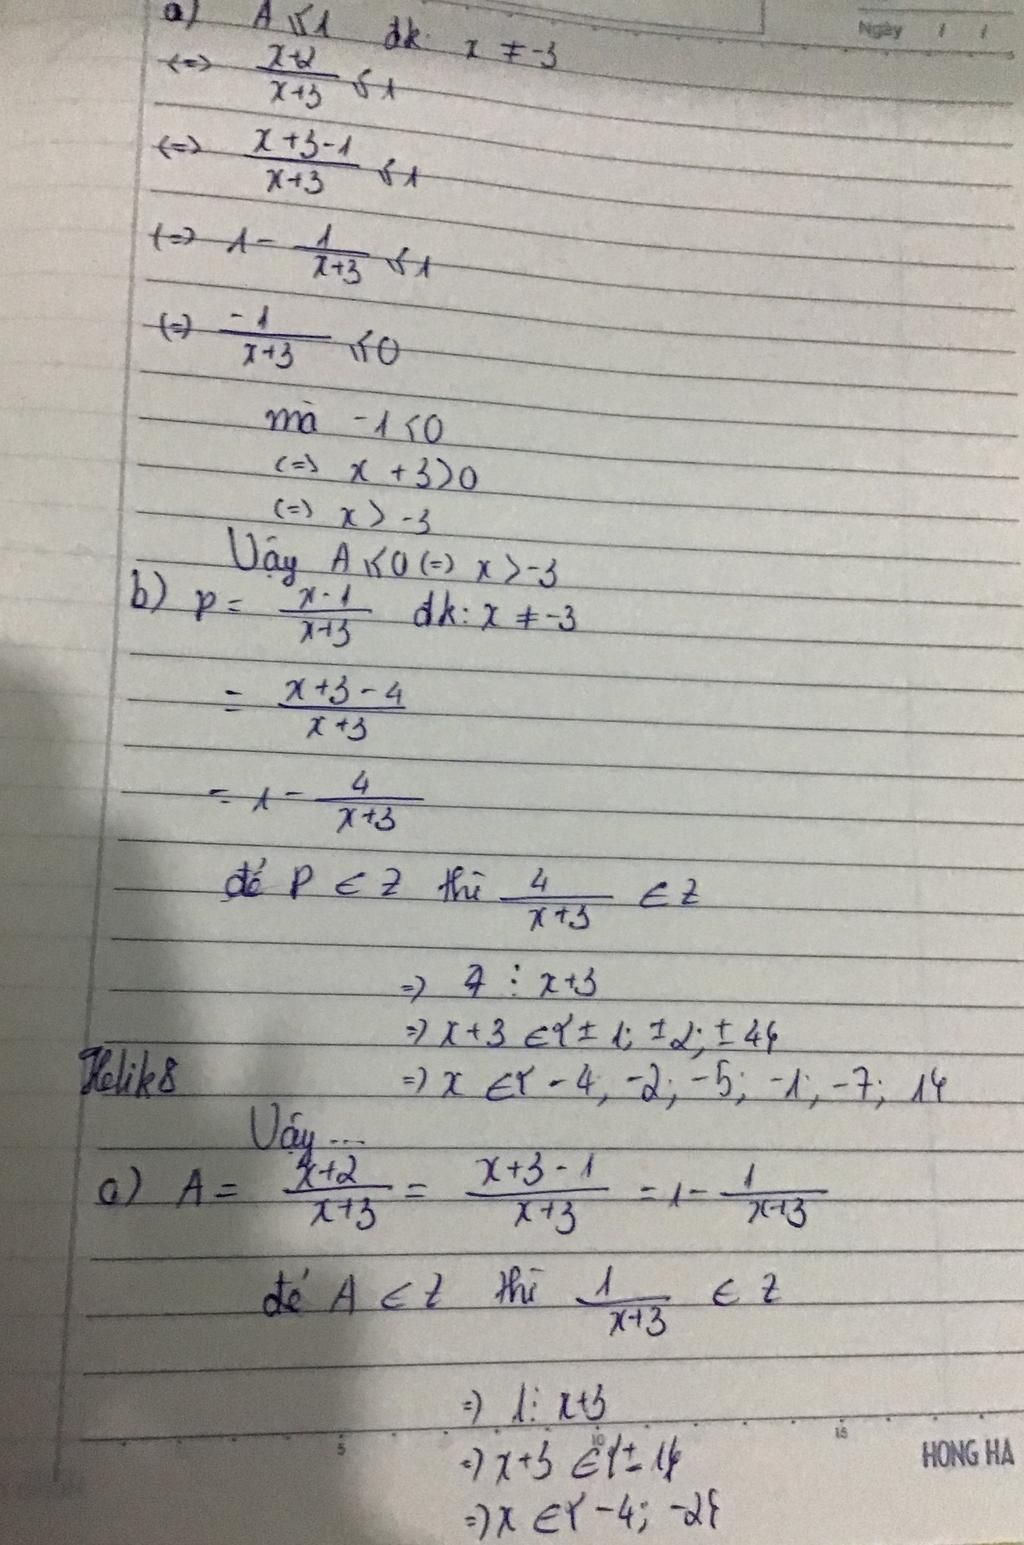 a) A < 1 đk: x ≠ -3
Ngày / /
(=) x+2/x+3 < 1
(=) x+3-1/x+3 < 1
(=) 1 - 1/x+3 < 1
(=) -1/x+3 < 0
mà -1 < 0
(=) x + 3 > 0
(=) x > -3
Vậy A < 0 (=) x > -3
b) P = x-1/x+3 đk: x ≠ -3
= x+3-4/x+3
= 1 - 4/x+3
để P ∈ Z thì 4/x+3 ∈ Z
=> 4 ⋮ x+3
=> x+3 ∈ {± 1; ± 2; ± 4}
Helik8
=> x ∈ {-4, -2; -5; -1; -7; 1}
Vậy ...
c) A = x+2/x+3 = x+3-1/x+3 = 1 - 1/x+3
để A ∈ Z thì 1/x+3 ∈ Z
=> 1 ⋮ x+3
5 10 15
HONG HA
=> x+3 ∈ {± 1}
=> x ∈ {-4; -2}